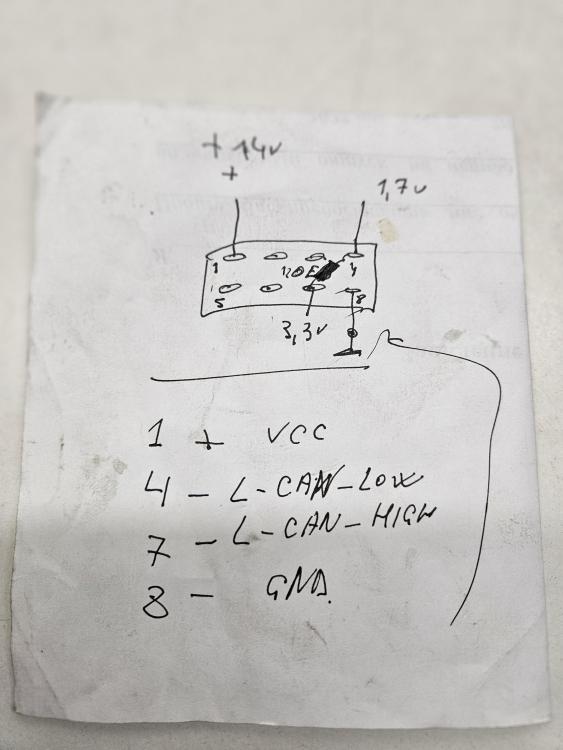 + 14v
+
1,7v
1 120E 4
5 8
3,3v
1 + VCC
4 - L-CAN-LOW
7 - L-CAN-HIGH
8 - GND.